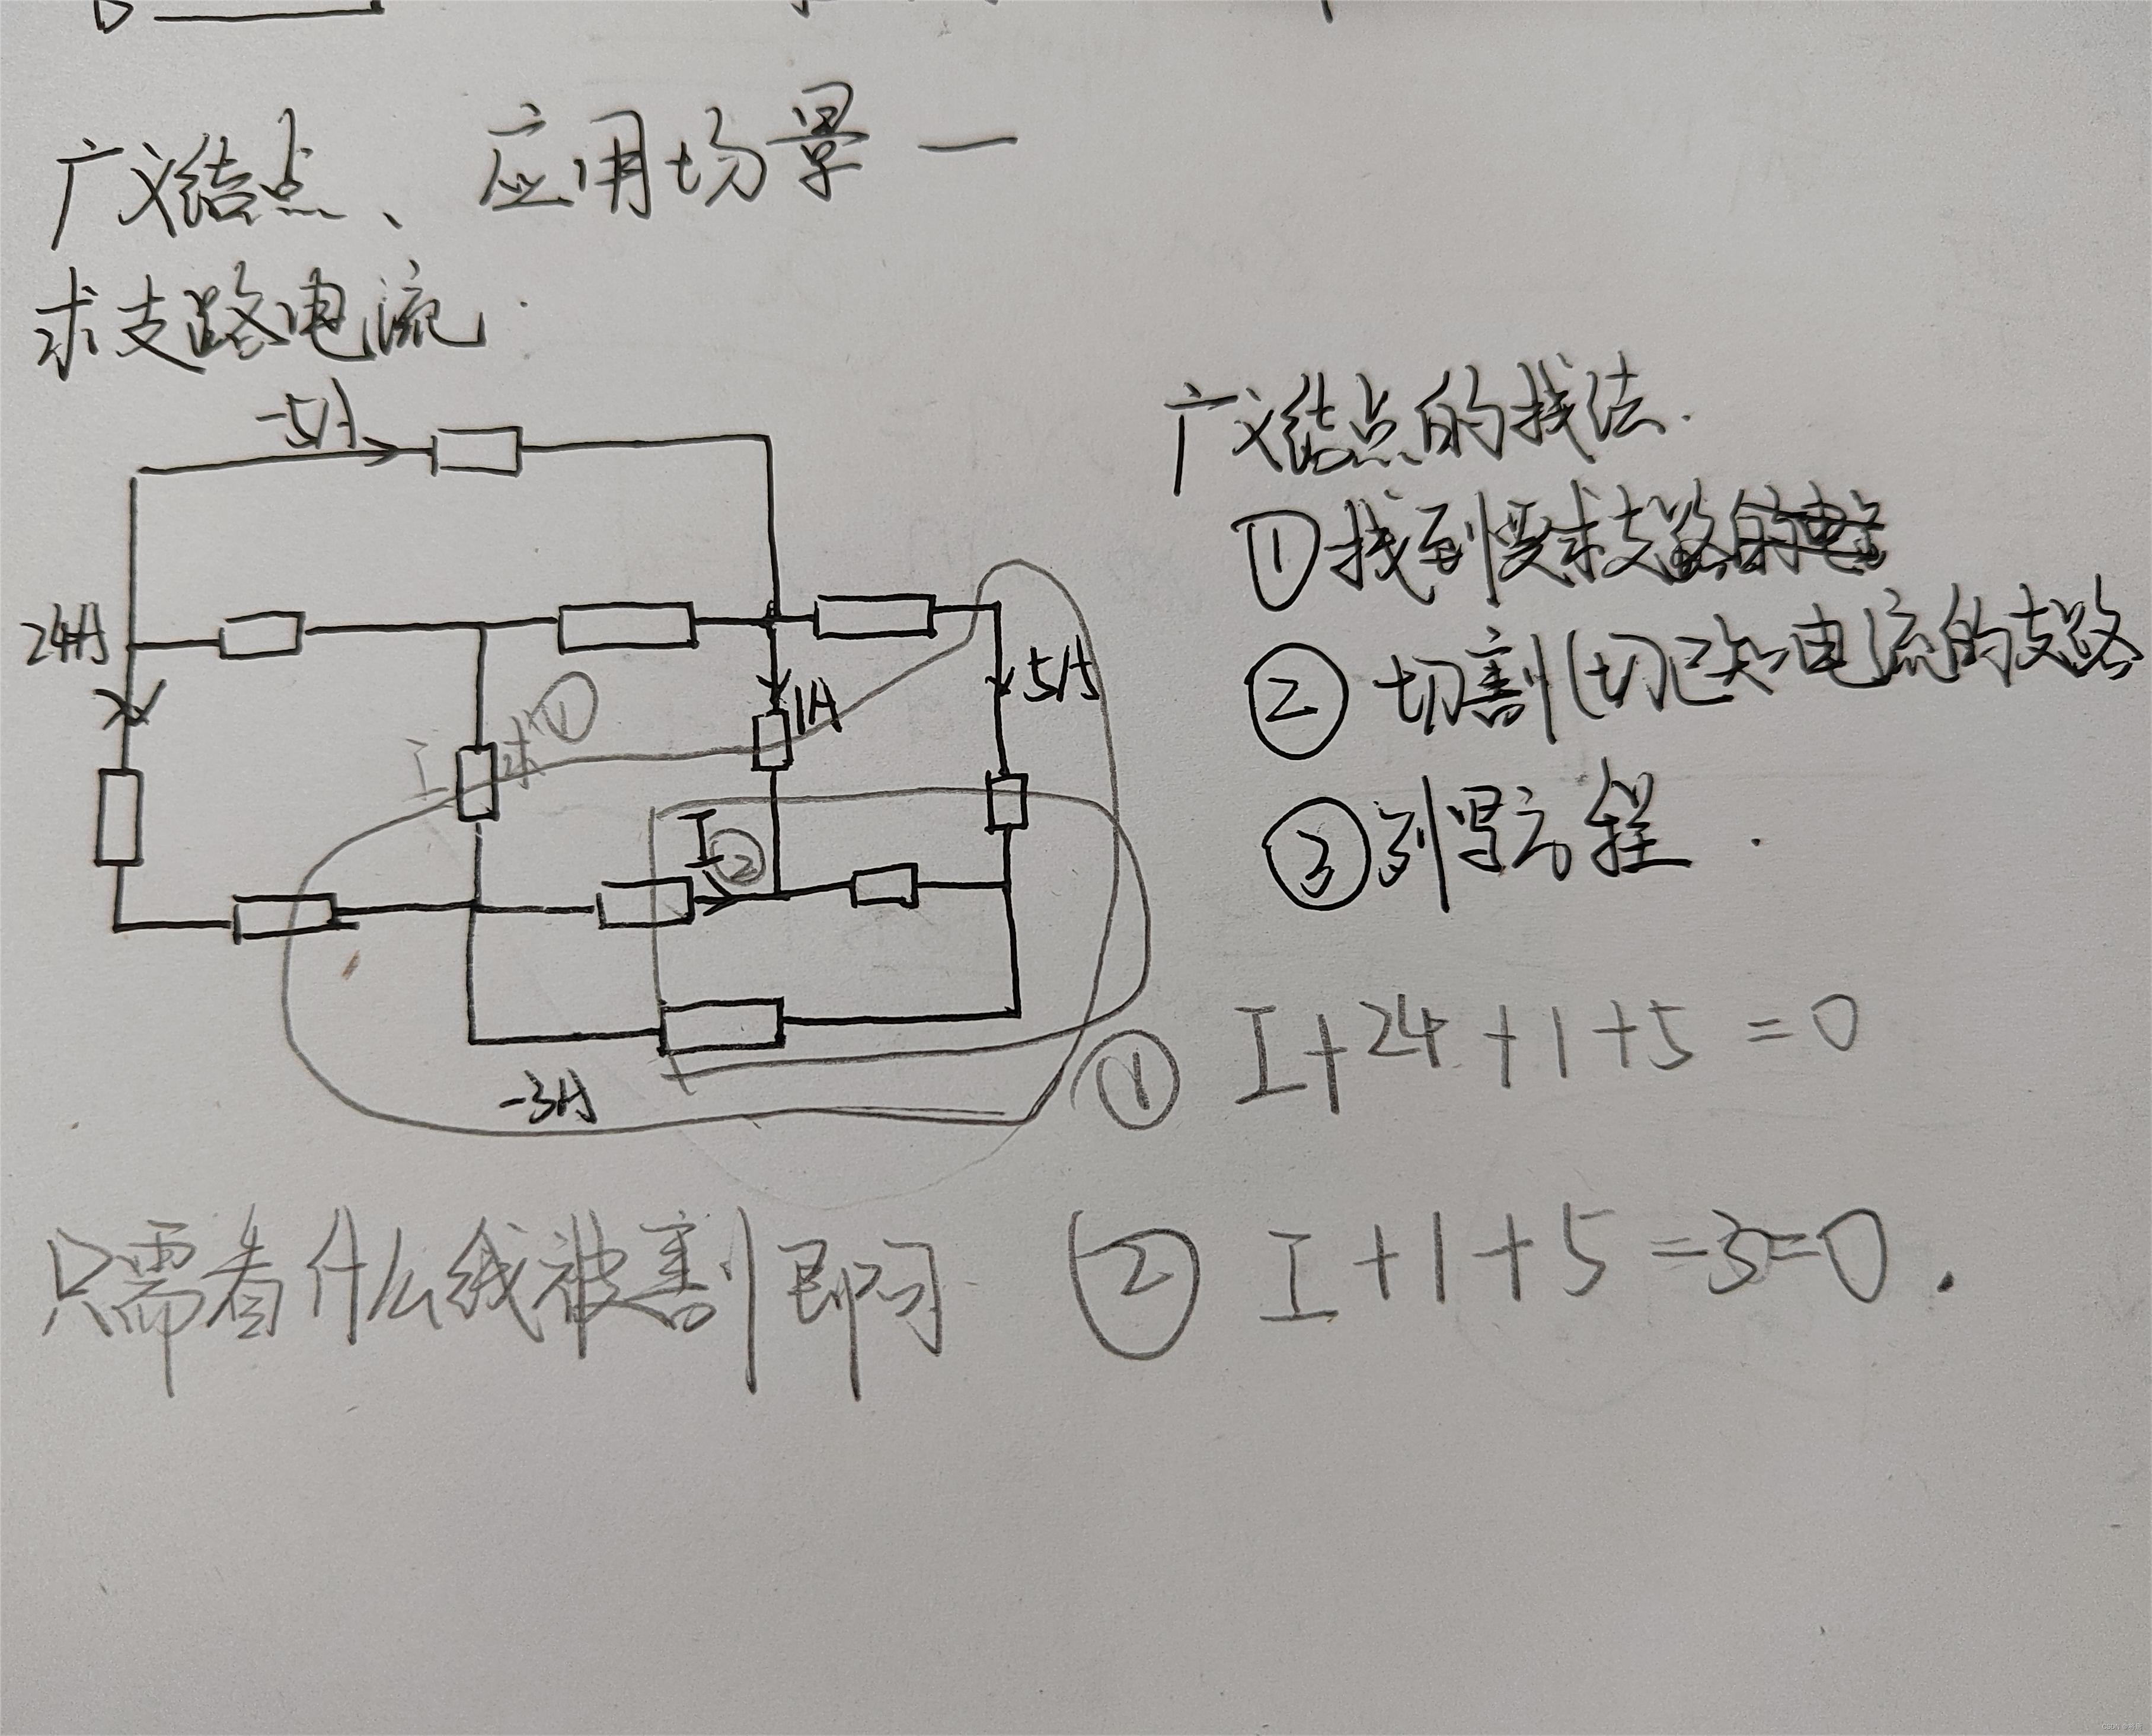 广义结点、应用场景一
求支路电流.
-5A
24A
1A
5A
I 求①
I ②
-3A
广义结点的找法.
①找到要求支路的电
②切割(切已知电流的支路
③列写方程.
① I+24+1+5=0
只需看什么线被割即可
② I+1+5=3=0.